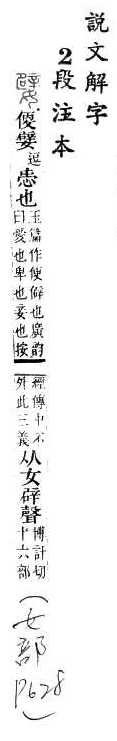 說文解字
2段注本
嬖 便嬖逗㤅也
玉篇作便僻也廣韵
曰愛也卑也妾也按
經傳中不
外此三義
从女辟聲
博計切
十六部
(女部 P628)